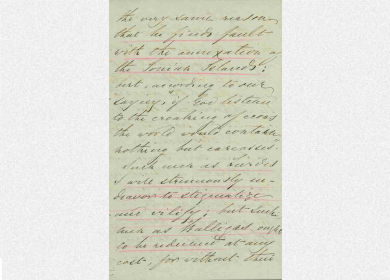 the very same reason
that he finds fault
with the annexation of
the Ionian Islands;
but, according to our
saying, if God listens
to the croaking of crows
the world would contain
nothing but carcasses.
Such men as
I will strenuously en-
deavor to stigmatize
and vilify; but such
men as Halligas ought
to be redeemed at any
cost, for without their